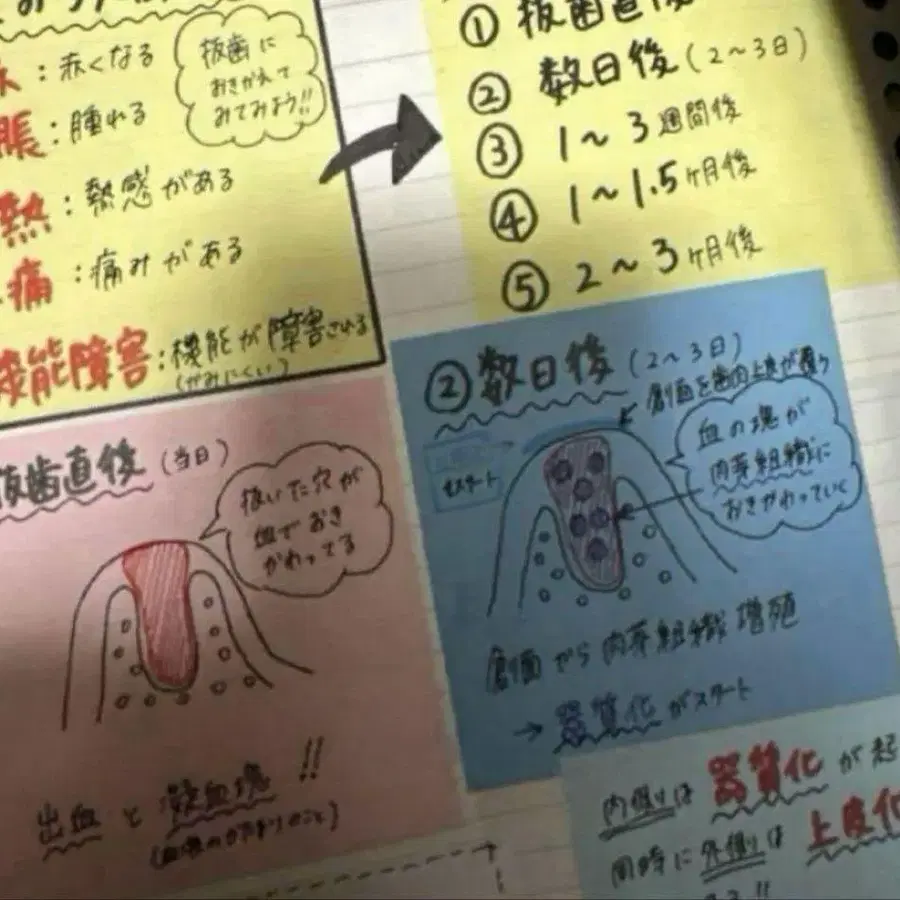 ：赤くなる
脹：腫れる
熱：熱感がある
痛：痛みがある
機能障害：機能が障害される
(かみにくい)
抜歯に
おきかえて
みてみよう!!
① 抜歯直後
② 数日後(2〜3日)
③ 1〜3週間後
④ 1〜1.5ヶ月後
⑤ 2〜3ヶ月後
抜歯直後(当日)
抜いた穴が
血でおき
かわってる
出血と凝血塊!!
②数日後(2〜3日)
創面を歯肉上皮が覆う
スタート
血の塊が
肉芽組織に
おきかわっていく
創面から肉芽組織増殖
→器質化がスタート
内側は器質化が起
同時に外側は上皮化